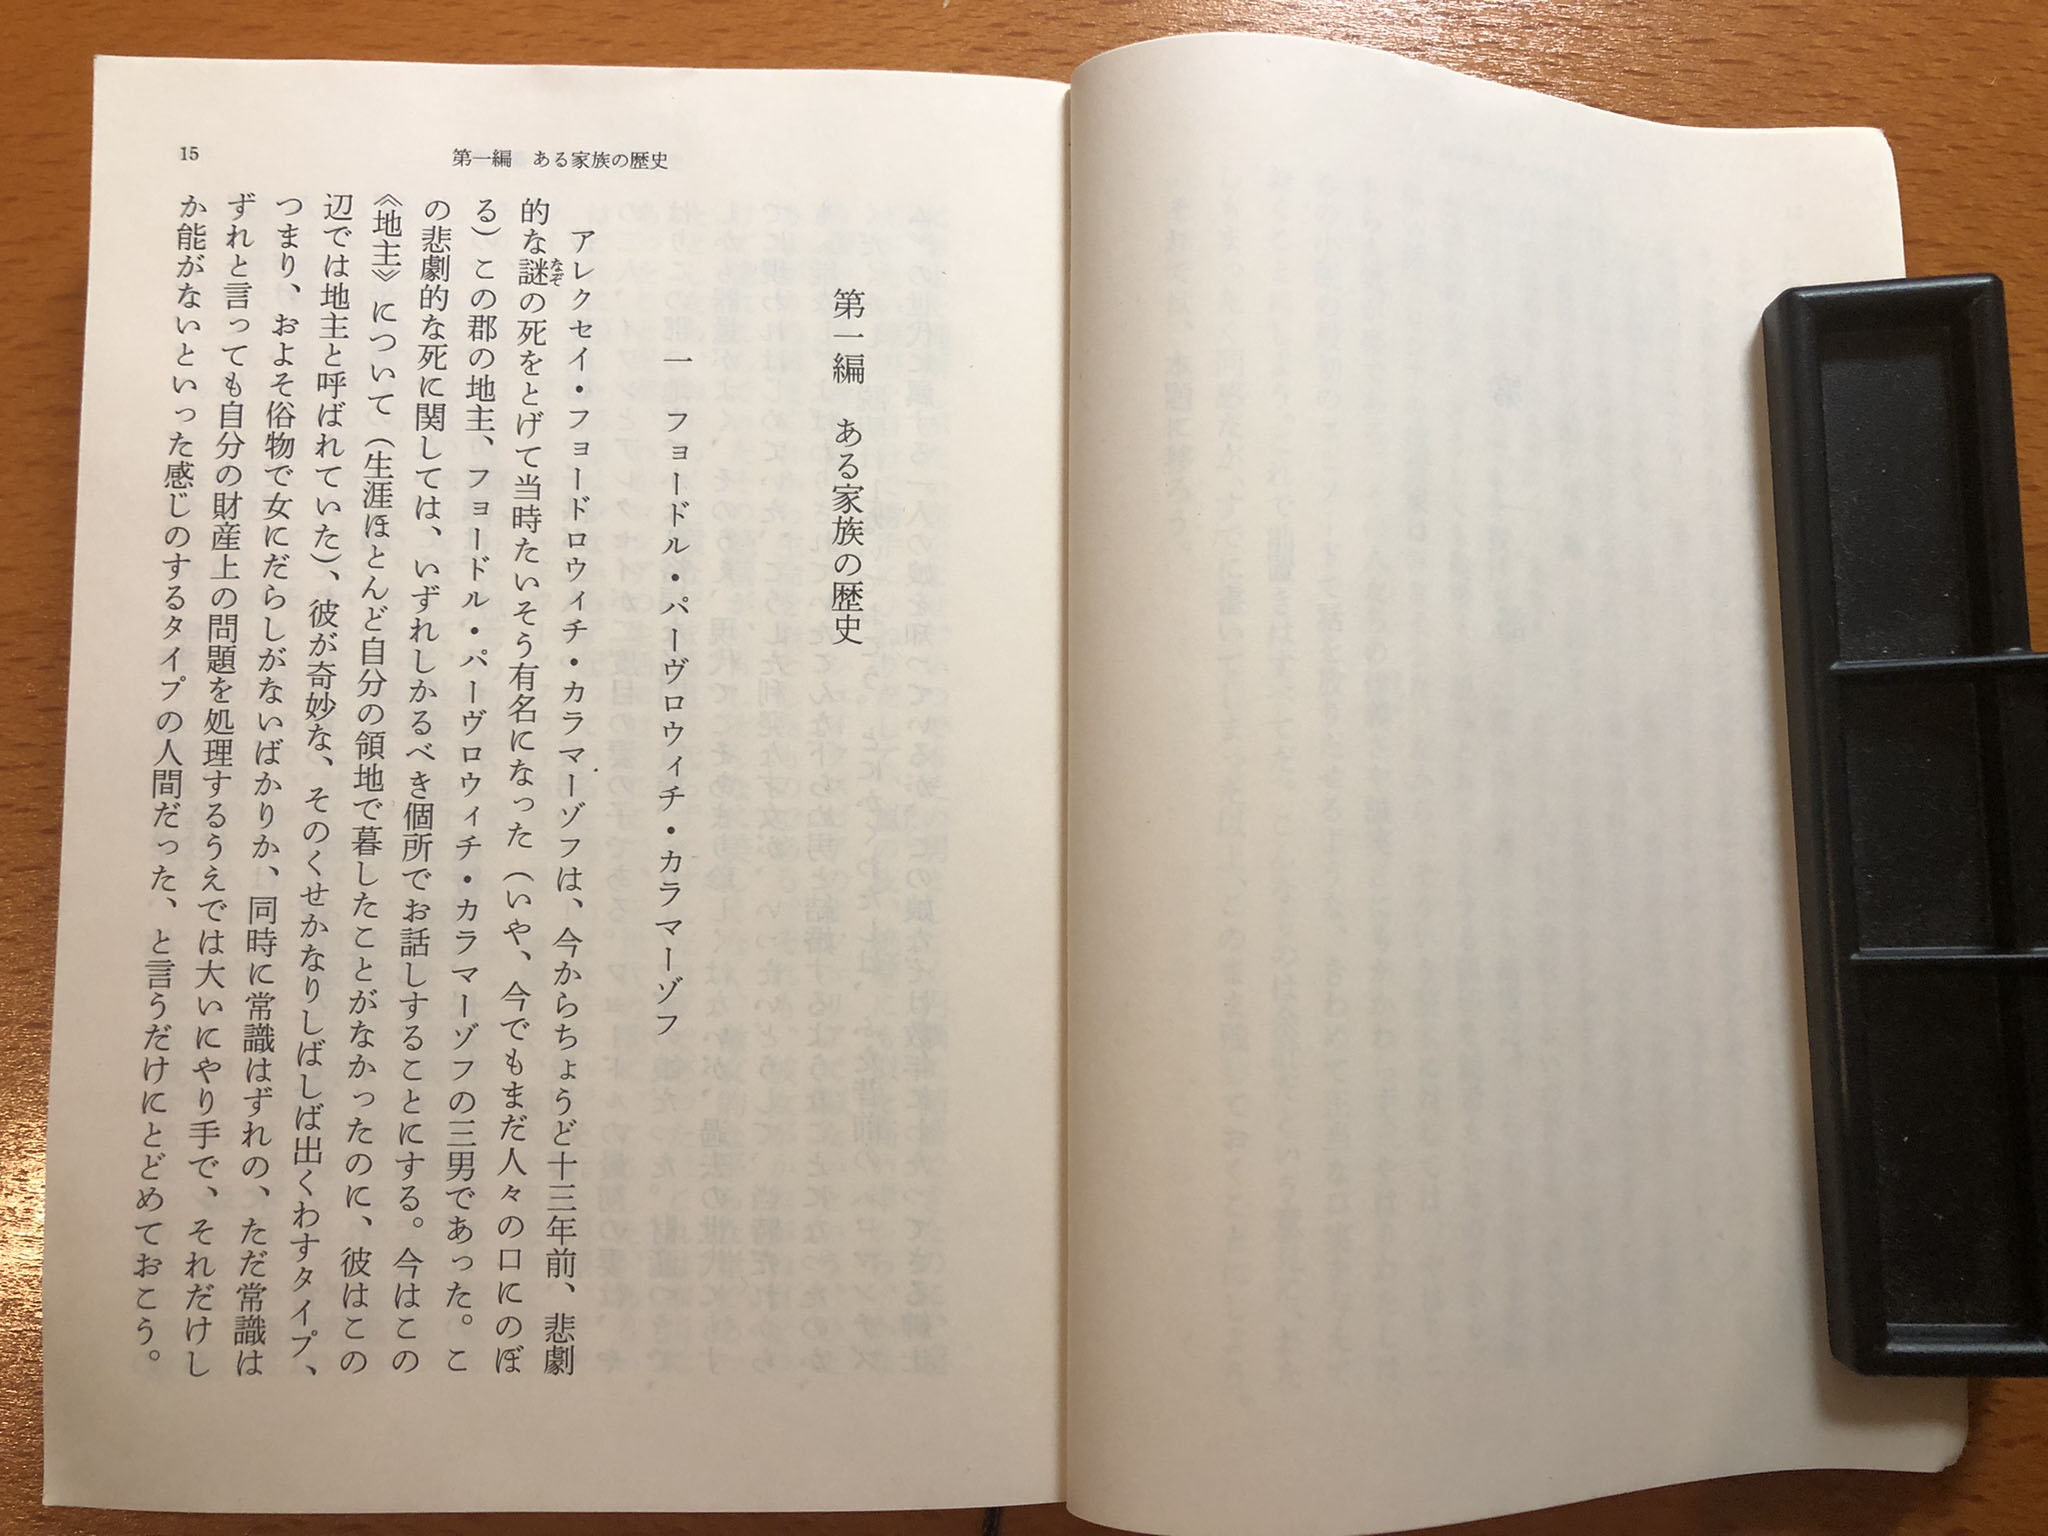 15
第一編　ある家族の歴史
第一編　ある家族の歴史
一　フョードル・パーヴロウィチ・カラマーゾフ
アレクセイ・フョードロウィチ・カラマーゾフは、今からちょうど十三年前、悲劇
的な謎なぞの死をとげて当時たいそう有名になった（いや、今でもまだ人々の口にのぼ
る）この郡の地主、フョードル・パーヴロウィチ・カラマーゾフの三男であった。こ
の悲劇的な死に関しては、いずれしかるべき個所でお話しすることにする。今はこの
《地主》について（生涯ほとんど自分の領地で暮したことがなかったのに、彼はこの
辺では地主と呼ばれていた）、彼が奇妙な、そのくせかなりしばしば出くわすタイプ、
つまり、およそ俗物で女にだらしがないばかりか、同時に常識はずれの、ただ常識は
ずれと言っても自分の財産上の問題を処理するうえでは大いにやり手で、それだけし
か能がないといった感じのするタイプの人間だった、と言うだけにとどめておこう。